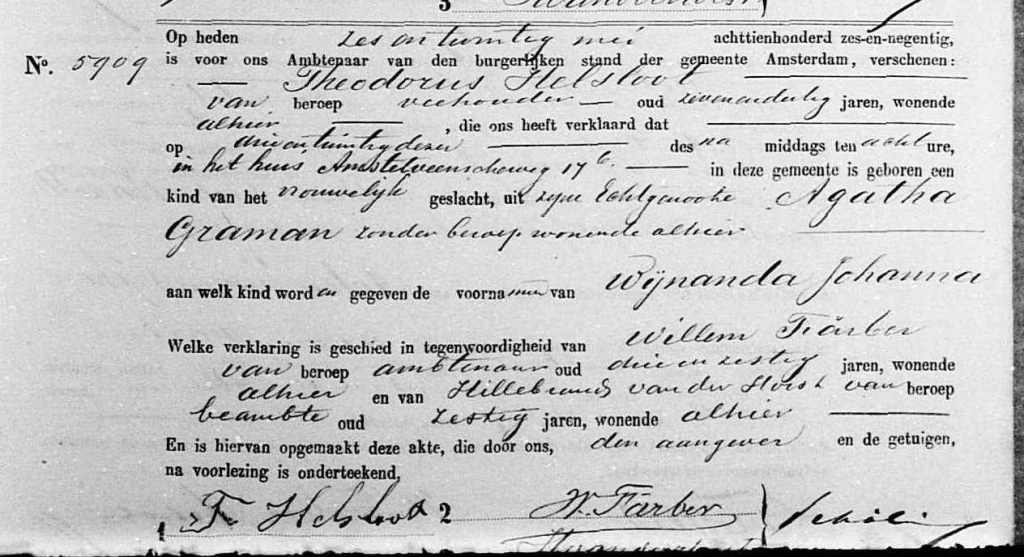 3
Op heden zes en twintig mei achttienhonderd zes-en-negentig,
Nº. 5909 is voor ons Ambtenaar van den burgerlijken stand der gemeente Amsterdam, verschenen:
Theodorus Helsloot
van beroep veehouder oud zevenendertig jaren, wonende
alhier, die ons heeft verklaard dat
op drie en twintig dezer des na middags ten acht ure,
in het huis Amstelveenscheweg 176. in deze gemeente is geboren een
kind van het vrouwelijk geslacht, uit zijne Echtgenoote Agatha
Graman zonder beroep wonende alhier
aan welk kind worden gegeven de voornamen van Wijnanda Johanna
Welke verklaring is geschied in tegenwoordigheid van Willem Färber
van beroep ambtenaar oud drie en zestig jaren, wonende
alhier en van Hillebrand van der Horst van beroep
beambte oud zestig jaren, wonende alhier
En is hiervan opgemaakt deze akte, die door ons, den aangever en de getuigen,
na voorlezing is onderteekend,
1 T. Helsloot 2 W. Färber